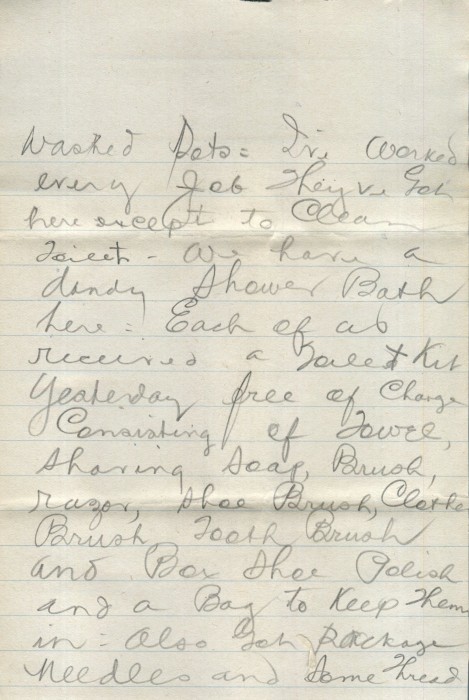 Washed Pots = I've worked
every Job They've Got
here except to Clean
Toilet - We have a
dandy Shower Bath
here = Each of us
received a Toilet Kit
Yesterday free of Charge
Consisting of Towel,
Shaving Soap, Brush,
razor, Shoe Brush, Clothe
Brush Tooth Brush
and Box Shoe Polish
and a Bag to Keep Them
in = Also Got Package
Needles and Some Thread